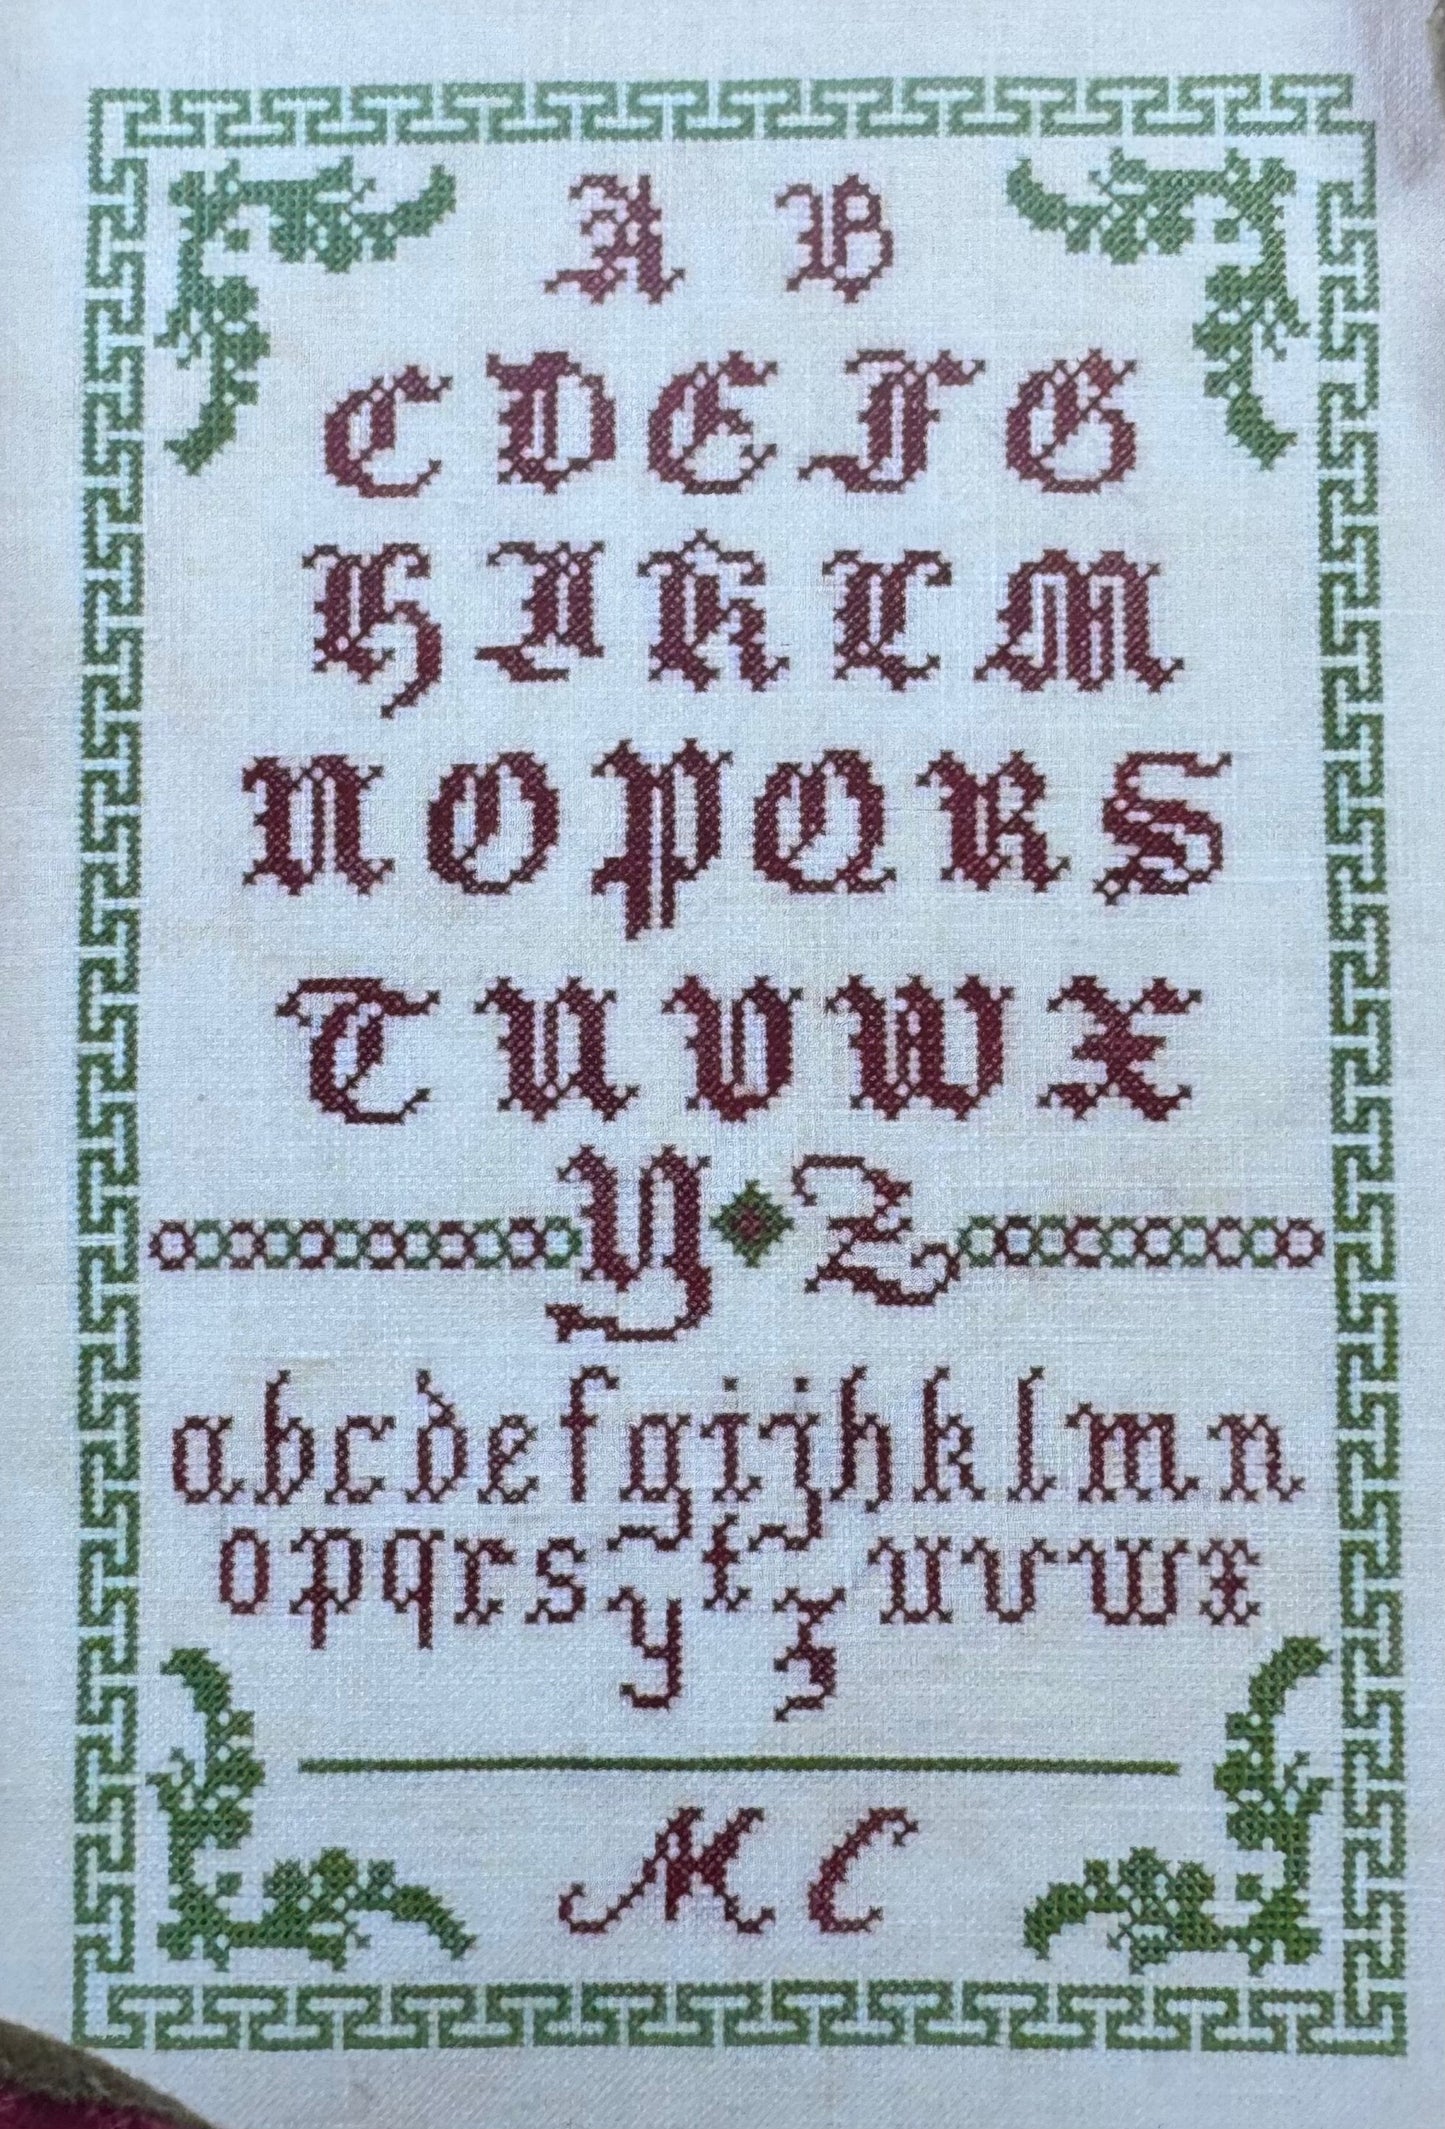 A B
C D E F G
H I K L M
N O P Q R S
T U V W X
Y Z
a b c d e f g i j h k l m n
o p q r s t u v w x
y z
M C